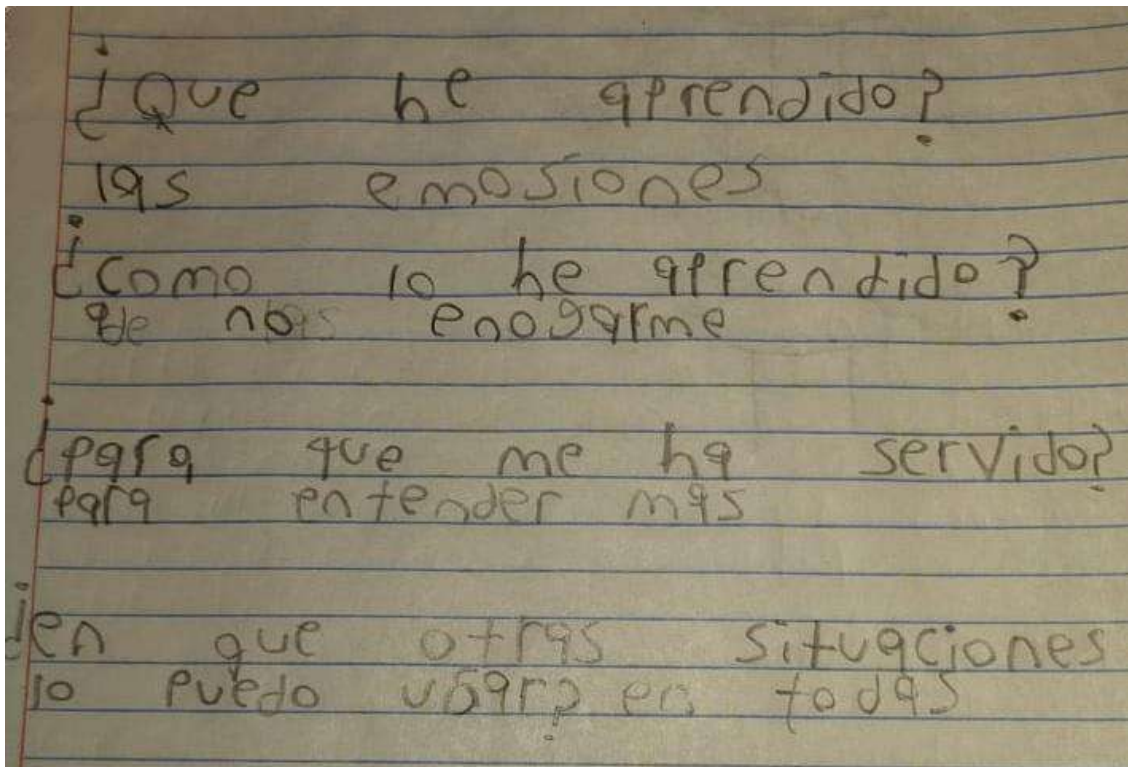 ¿Que he aprendido?
las emosiones
¿como lo he aprendido?
de enogarme
¿para que me ha servido?
para entender mas
¿en que otras situaciones
lo puedo usar? en todas